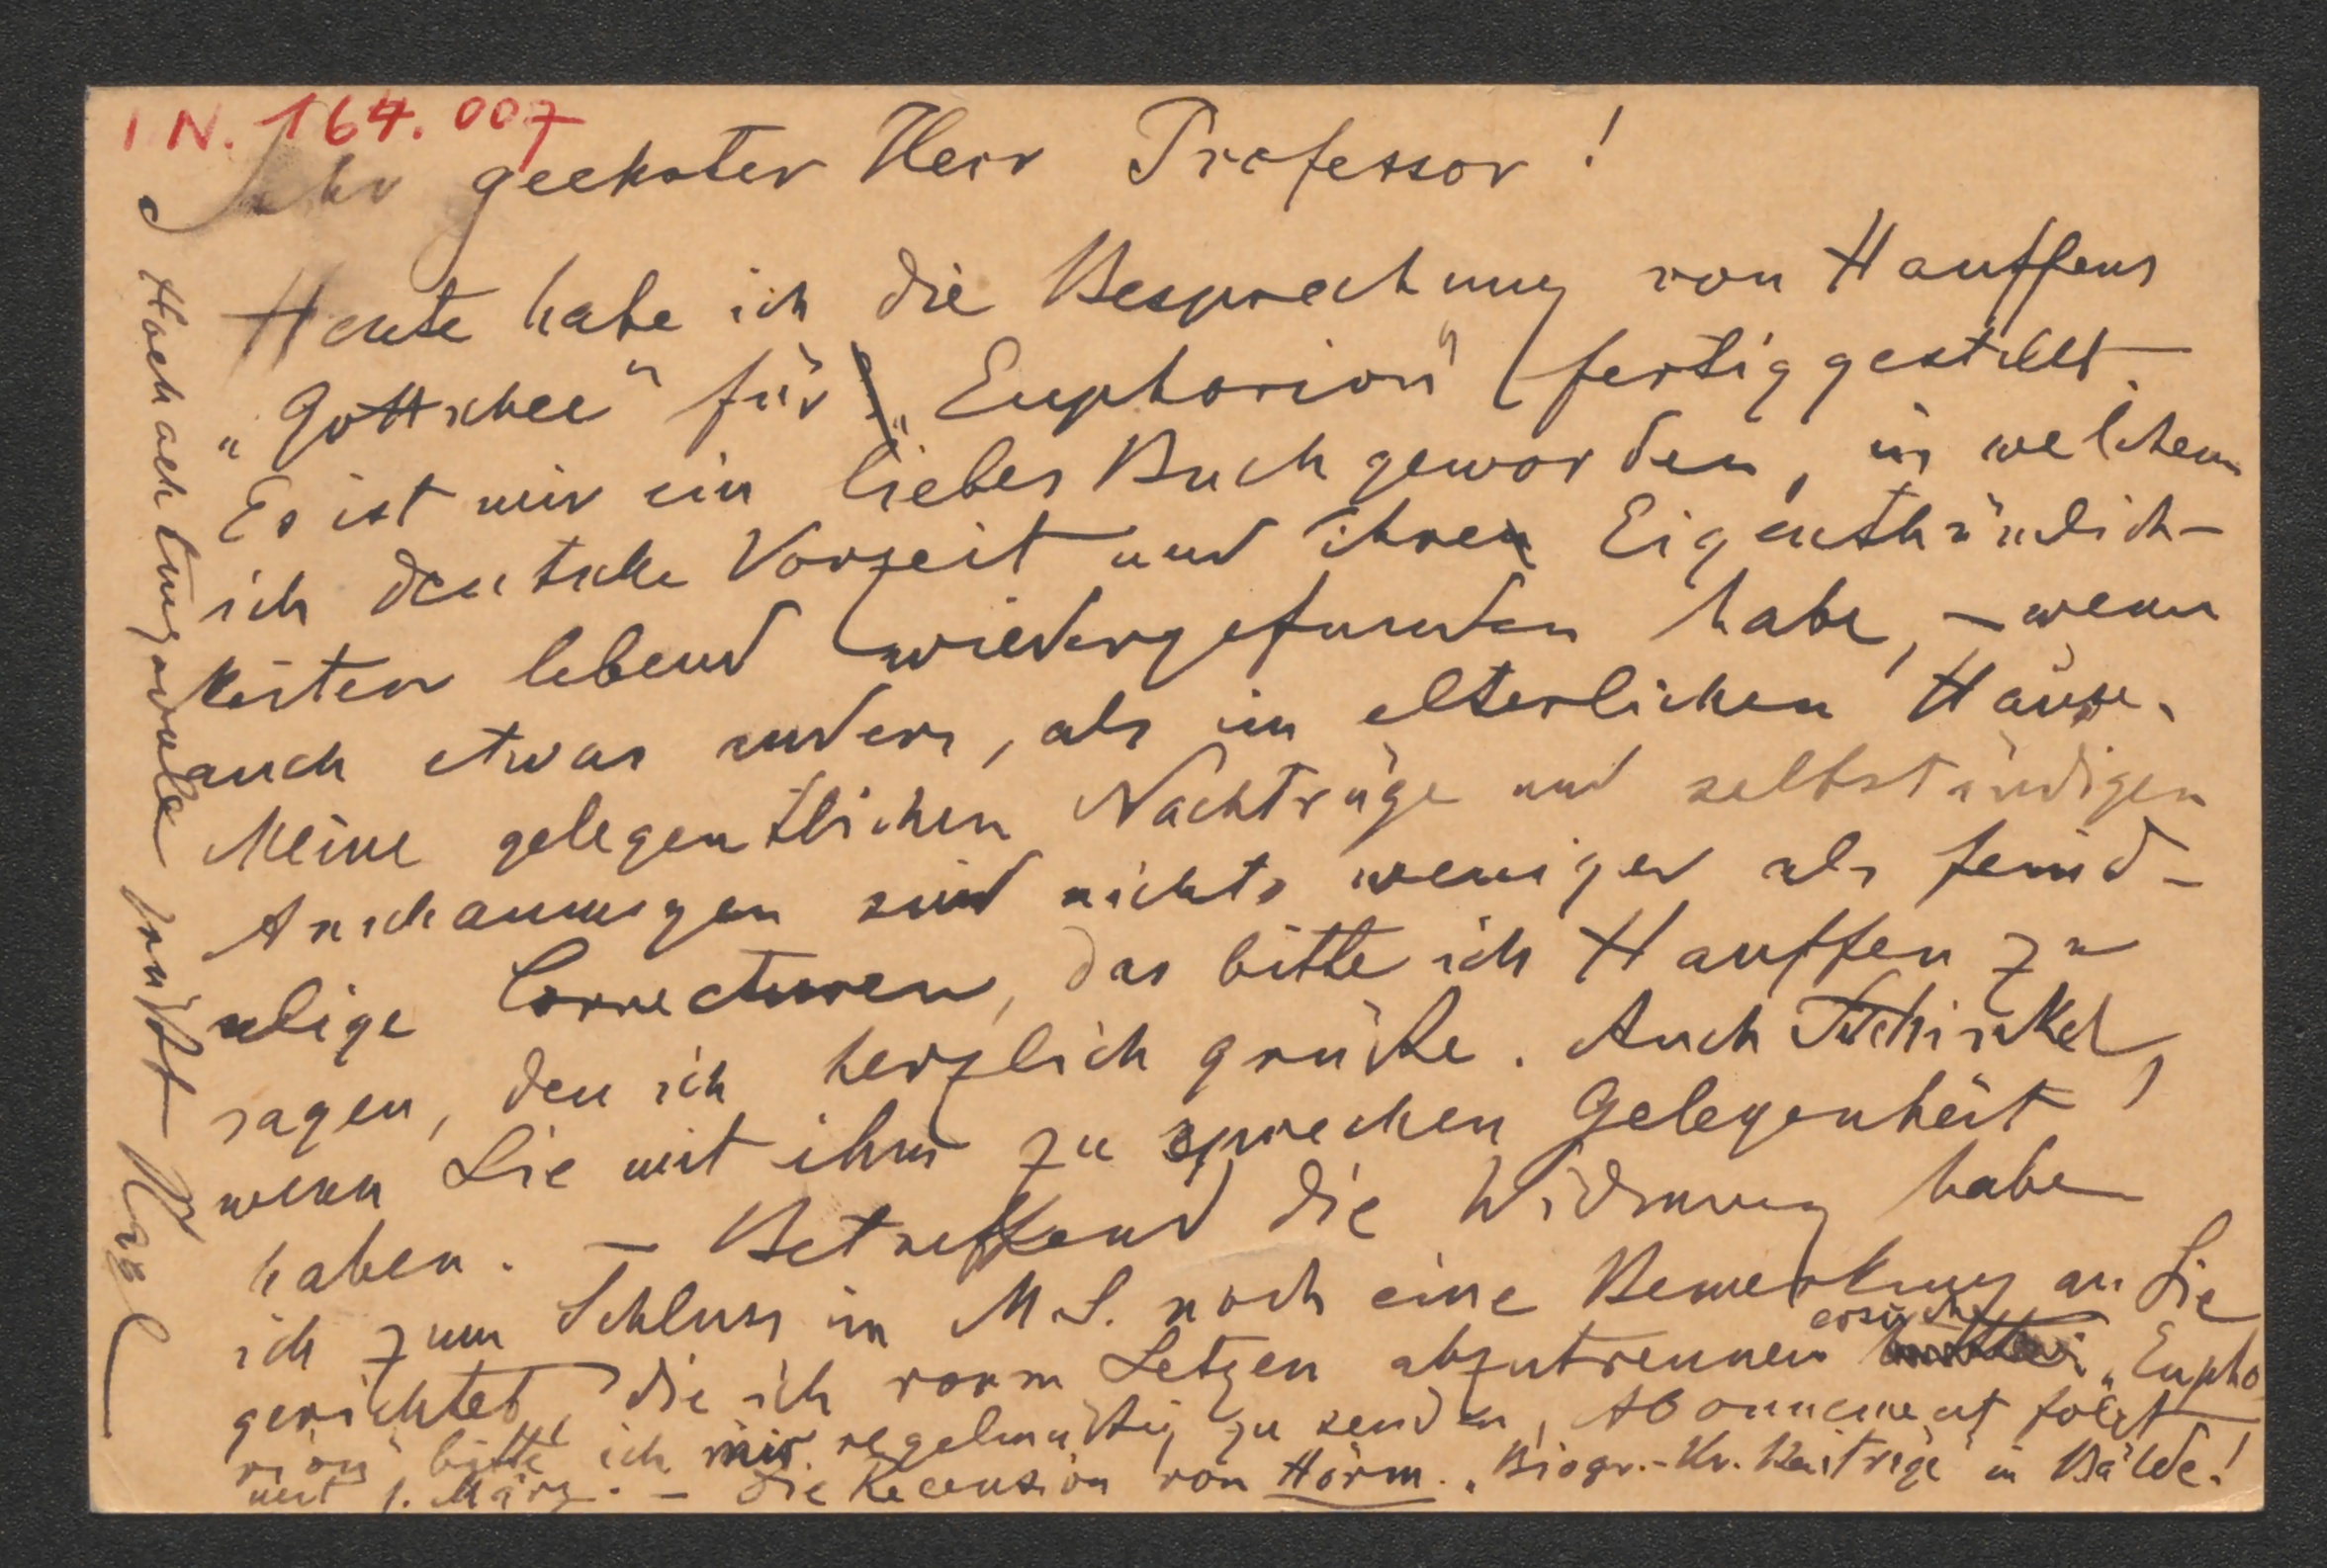 I N. 164.007
Sehr geehrter Herr Professor!
Heute habe ich die Besprechung von Hauffens
„Gottschee“ für „Euphorion“ fertiggestellt.
Es ist mir ein liebes Buch geworden, in welchem
ich deutsche Vorzeit und ihren Eigenthümlich-
keiten lebend wiedergefunden habe, – wenn
auch etwas anders, als im elterlichen Hause.
Meine gelegentlichen Nachträge und selbständigen
Anschauungen sind nichts weniger als feind-
selige Correcturen, das bitte ich Hauffen zu
sagen, den ich herzlich grüße. Auch Tschinkel,
wenn Sie mit ihm zu sprechen Gelegenheit
haben. – Betreffend die Widmung habe
ich zum Schluss im M.S. noch eine Bemerkung an Sie
gerichtet, die ich vorm Setzen abzutrennen ersuche. „Eupho
rion“ bitte ich mir regelmäßig zu senden, Abonnement folgt
mit 1. März. – Die Recension von Hörm. „Biogr.-Kr. Beiträge“ in Bälde!
Hochachtungsvollst grüßt Nagl